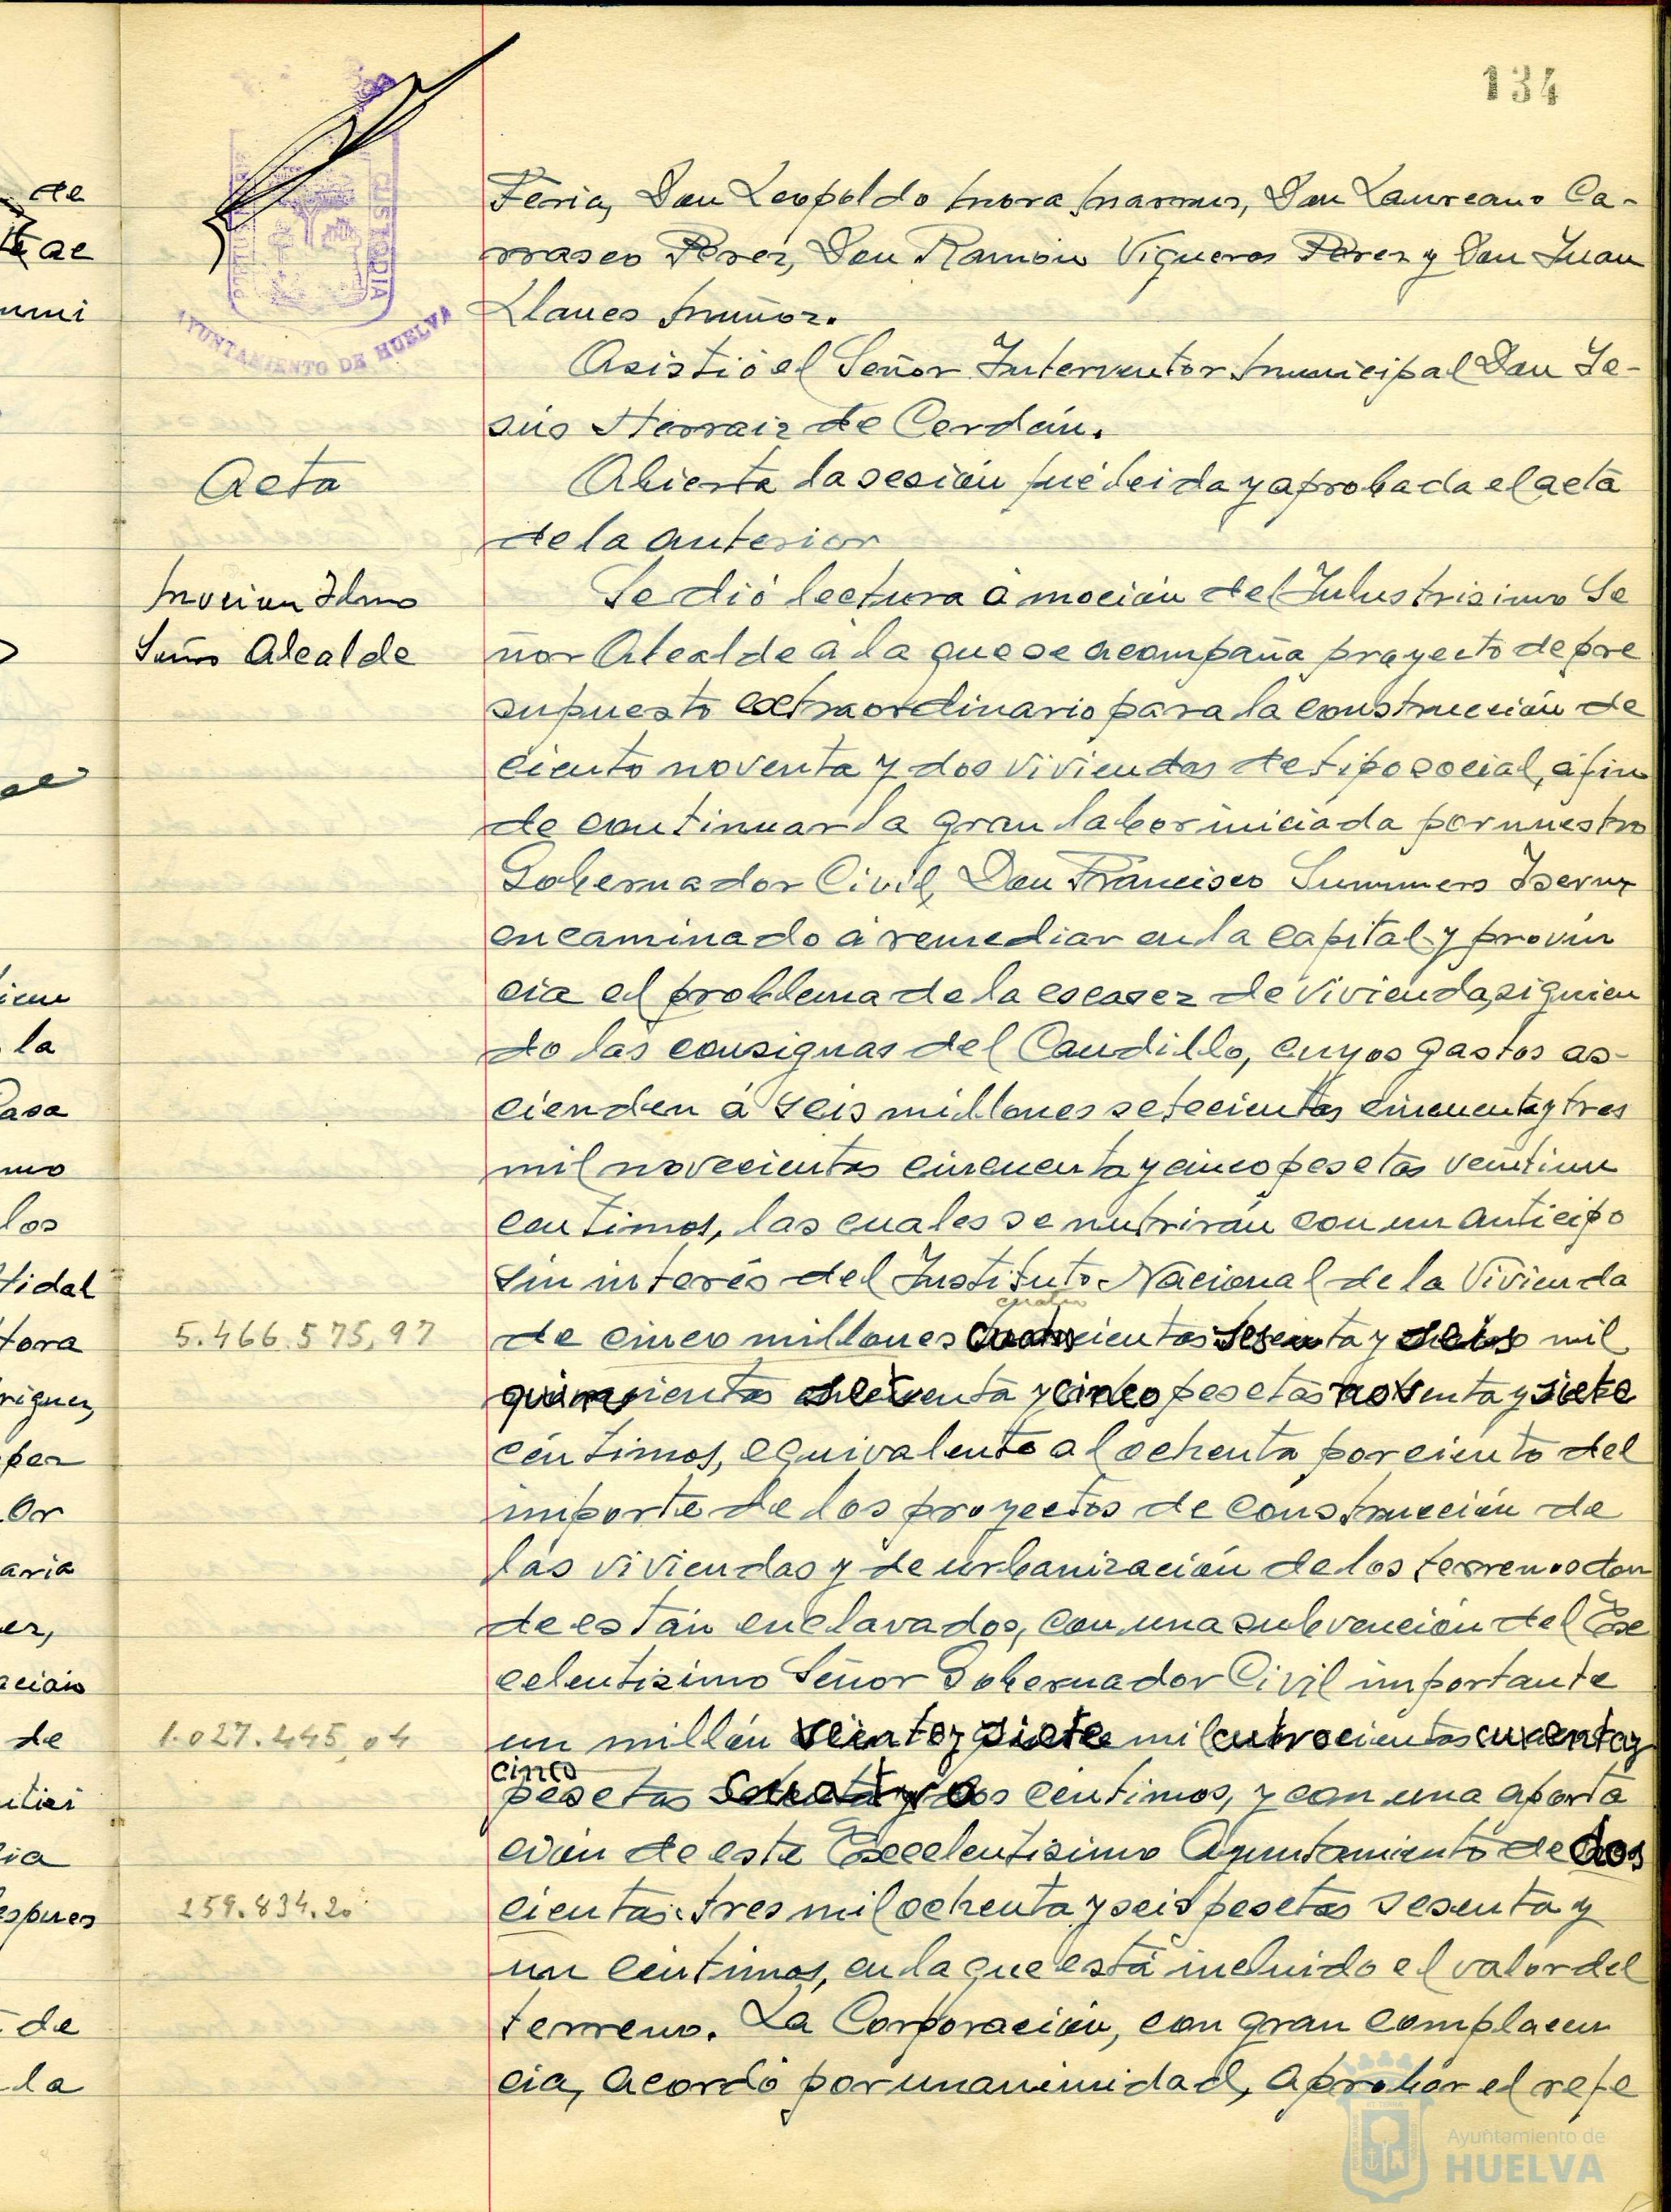 134
Feria, Don Leopoldo Mora Marmer, Don Laureano Ca-
rrasco Perez, Don Ramón Vigueras Perez y Don Juan
Llanes Muñoz.
Asistió el Señor Interventor Municipal Don Je-
sús Herraiz de Cerdán.
Acta
Abierta la sesión fué leida y aprobada el acta
de la anterior
Mocion Ilmo
Señor Alcalde
Se dió lectura á moción del Iulustrisimo Se
ñor Alcalde á la que se acompaña proyecto de pre
supuesto extraordinario para la construcción de
ciento noventa y dos viviendas de tipo social, á fin
de continuar la gran labor iniciada por nuestro
Gobernador Civil, Don Francisco Summers Isern
encaminado á remediar en la capital y provin
cia el problema de la escasez de vivienda, siguien
do las consignas del Caudillo, cuyos gastos as-
cienden á seis millones setecientas cincuenta y tres
mil novecientas cincuenta y cinco pesetas veintiun
centimos, las cuales se nutrirán con un anticipo
sin interés del Instituto Nacional de la Vivienda
cuatro
5.466.575,97
de cinco millones cuatrocientas sesenta y seis mil
quinientas setenta y cinco pesetas noventa y siete
céntimos, equivalente al ochenta por ciento del
importe de los proyectos de construcción de
las viviendas y de urbanización de los terrenos don
de están enclavados, con una subvención del Exc
celentisimo Señor Gobernador Civil importante
1.027.445,04
un millón veinte y siete mil cutrocientas curenta y
cinco
pesetas cuatro céntimos, y con una aporta
ción de este Excelentisimo Ayuntamiento de dos
259.834.20
cientas tres mil ochenta y seis pesetas sesenta y
un céntimos, en la que está incluido el valor del
terreno. La Corporación, con gran complacen
cia, acordó por unanimidad, aprobar el refe
CUSTODIA
AYUNTAMIENTO DE HUELVA
Ayuntamiento de
HUELVA